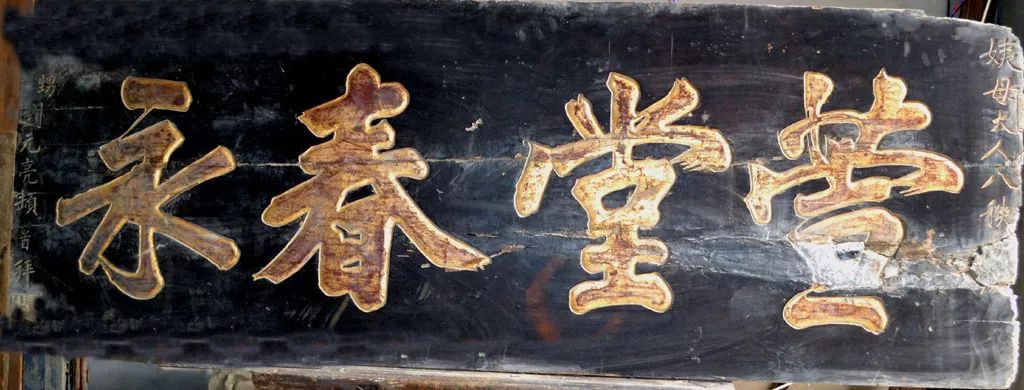 姨母大人八
萱堂春永
甥元亮首拜